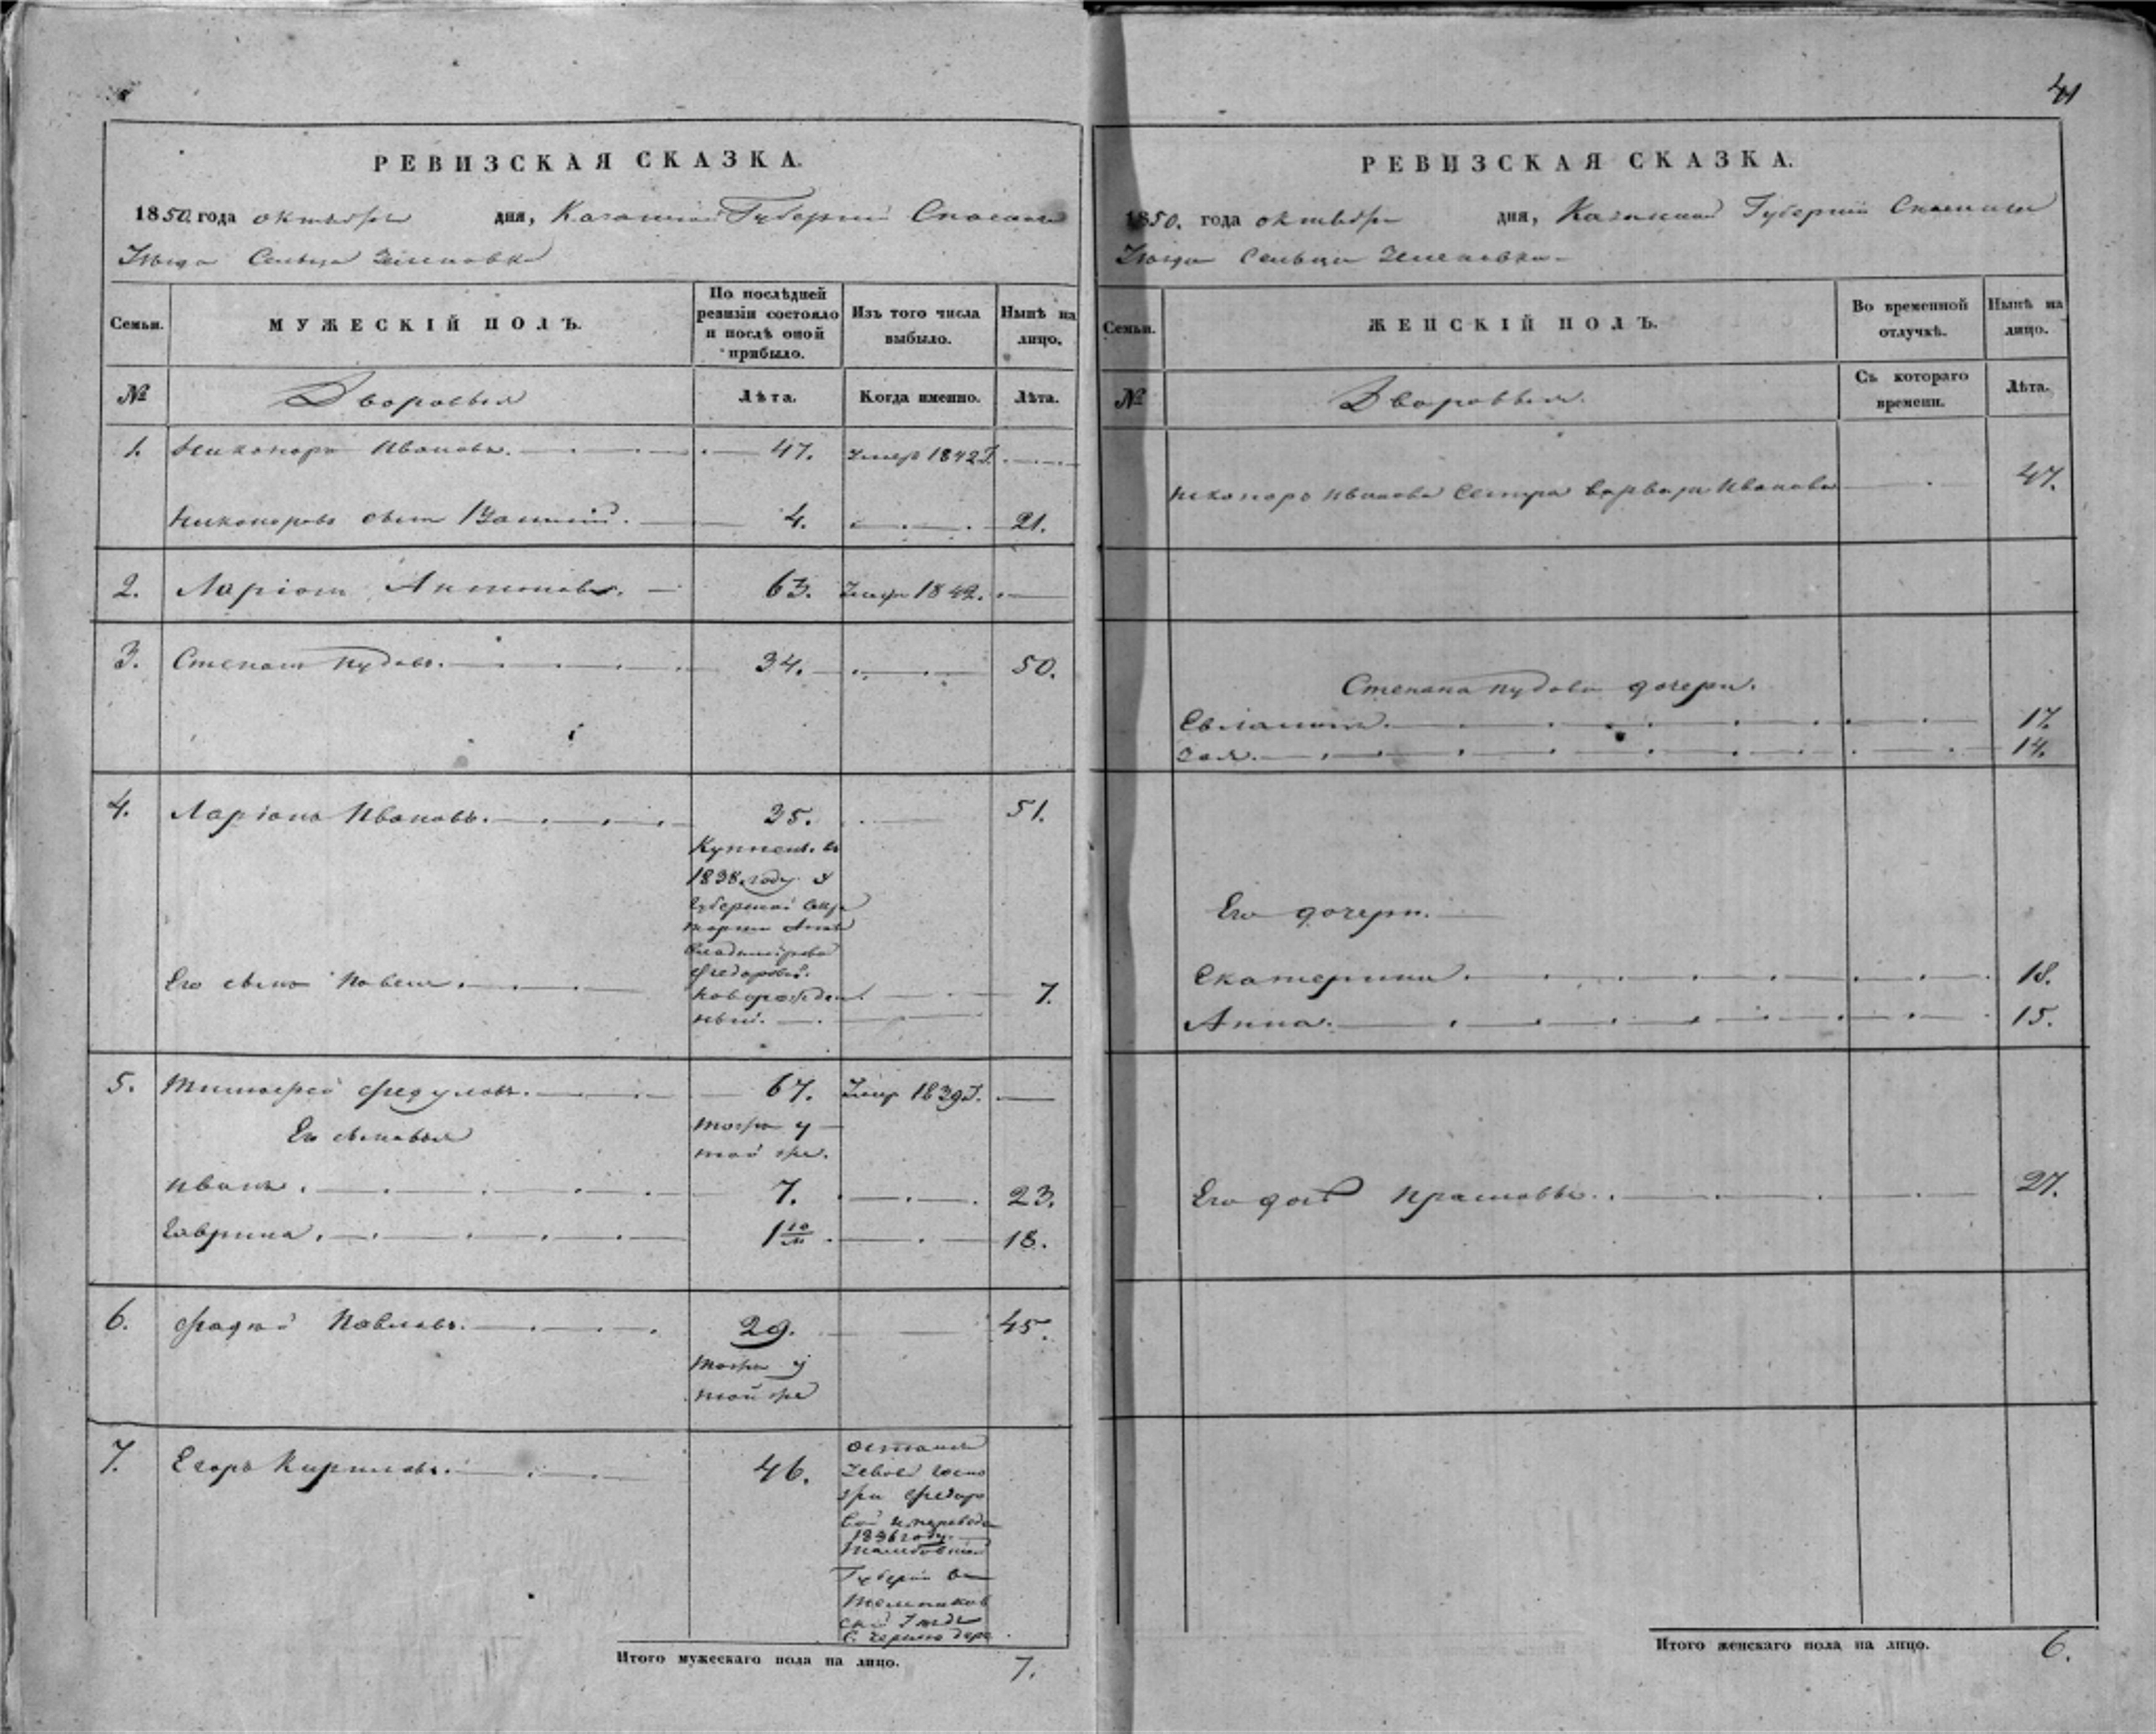 41
РЕВИЗСКАЯ СКАЗКА.
1850 года октября дня, Казанской Губернии Спаскаго
Уезда Сельца
Семьи. МУЖЕСКІЙ ПОЛЪ. По послѣдней ревизіи состояло и послѣ оной прибыло. Изъ того числа выбыло. Нынѣ на лицо.
№ Дворовыя Лѣта. Когда именно. Лѣта.
1. Никоноръ Ивановъ. 47. умер 1842 г.
Никонорова сынъ Василий. 4. 21.
2. Ларіонъ Антоновъ. 63. Умер 1842.
3. Степанъ Пудовъ. 34. 50.
4. Ларіонъ Ивановъ. 35. 51.
Куплен. въ
1838. году у
Губернской Секре
тарши Анны
Владимировой
Федоровой.
Его сынъ Павелъ. новорожден 7.
ный.
5. Тимофей Федуловъ. 67. Умер 1839 г.
Его сыновья тоже у
той же.
Иванъ. 7. 23.
Гаврила. 1 10/м 18.
6. Фадей Павловъ. 29. 45.
тоже у
той же
7. Егоръ Кириловъ. 46.
госпо
жи Федоро
вой и переведен
1836 году.
Тамбовской
Губернии
Темников
ской
Итого мужескаго пола на лицо. 7.
РЕВИЗСКАЯ СКАЗКА.
1850. года октября дня, Казанской Губернии Спаскаго
Уезда Сельца
Семьи. ЖЕНСКІЙ ПОЛЪ. Во временной отлучкѣ. Нынѣ на лицо.
№ Дворовыя. Съ котораго времени. Лѣта.
Никонора Иванова Сестра Варвара Иванова 47.
Степана Пудова дочери.
Евлампия. 17.
Зоя. 14.
Его дочери.
Екатерина. 18.
Анна. 15.
Его дочь Прасковья. 27.
Итого женскаго пола на лицо. 6.